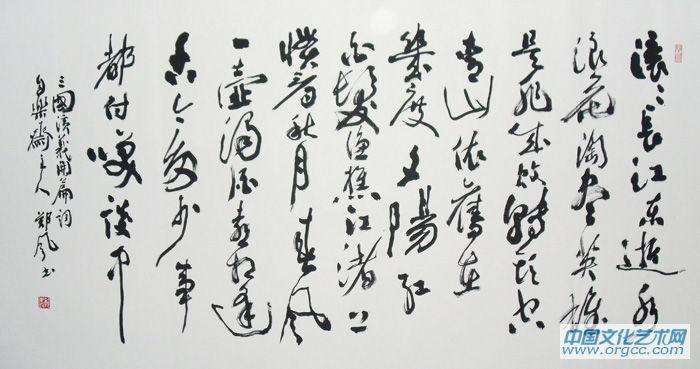 滚滚长江东逝水
浪花淘尽英雄
是非成败转头空
青山依旧在
几度夕阳红
白发渔樵江渚上
惯看秋月春风
一壶浊酒喜相逢
古今多少事
都付笑谈中
三国演义开篇词
自乐斋主人郑风书
中国文化艺术网
www.orgcc.com